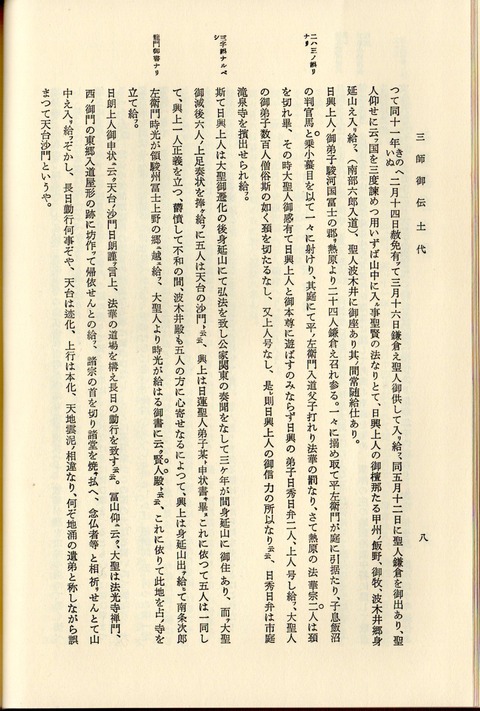 三師御伝土代
八
つて同十一年きのへいぬ二月十四日赦免有ッて三月十六日鎌倉え聖人御供して入リ給フ、同五月十二日に聖人鎌倉を御出あり、聖
人仰せに云ク国を三度諫めつ用いずば山中に入ル事聖賢の法なりとて、日興上人の御檀那たる甲州ノ飯野、御牧、波木井郷身
延山え入リ給フ、(南部六郎入道)、聖人波木井に御座あり其ノ間常随給仕あり。
二ハ三ノ誤リナリ
日興上人ノ御弟子駿河国富士の郡ノ熱原より二十四人鎌倉え召れ参る。一々に搦め取て平左衛門が庭に引据たり、子息飯沼
の判官馬と乗小蟇目を以て一々に射けり、其庭にて平ノ左衛門入道父子打れり法華の罰なり、さて熱原の法華宗二人は頚
を切れ畢、その時大聖人御感有て日興上人と御本尊に遊ばすのみならず日興の弟子日秀日弁二人、上人号し給フ、大聖人
の御弟子数百人僧俗斯の如く頚を切たるなし、又上人号なし、是レ則日興上人の御信力の所以なり云云、日秀日弁は市庭
滝泉寺を擯出せられ給フ。
三字誤ナルベシ
斯て日興上人は大聖御遷化の後身延山にて弘法を致し公家関東の奏聞をなして三ケ年が間身延山に御住あり、而ルに大聖
御滅後六人ノ上足奏状を捧ケ給フに五人は天台の沙門ト云云、興上は日蓮聖人弟子某ト申状書キ畢ヌこれに依つて五人は一同し
て、興上一人正義を立つ欝憤して不和の間、波木井殿も五人の方に心寄せなるによつて、興上は身延山出テ給フて南条次郎
龍門御審ナリ
左衛門時光が領駿州富士上野の郷ェ越ェ給フ、大聖人より時光が給はる御書に云ク賢人殿ト云云、これに依りて此地を占ノ寺を
立て給フ。
日朗上人御申状ニ云ク天台ノ沙門日朗謹テ言上、法華の道場を構え長日の動行を致す云云。富山仰ニ云ク大聖は法光寺禅門、
西ノ御門の東郷入道屋形の跡に坊作ッて帰依せんとの給フ、諸宗の首を切り諸堂を焼キ払へ、念仏者等と相祈、せんとて山
中え入リ給フぞかし、長日勤行何事そや、天台は迹化、上行は本化、天地雲泥ノ相違なり、何そ地涌の遺弟と称しながら誤
まつて天台沙門というや。